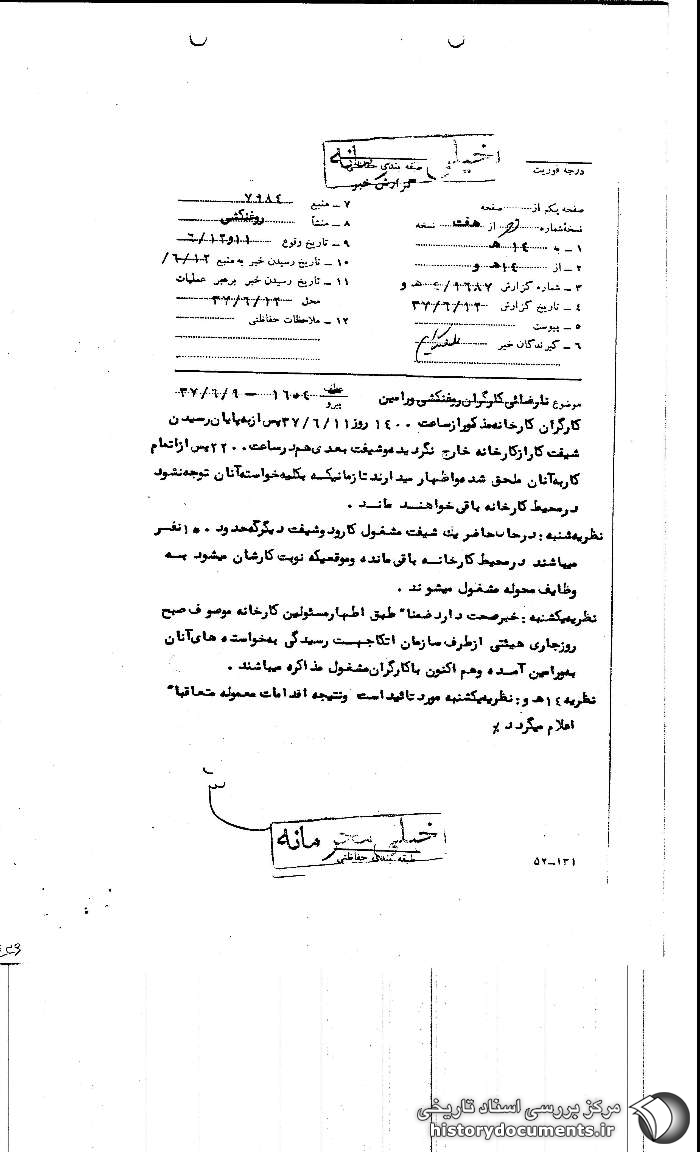 خیلی محرمانه
طبقه بندی حفاظتی
گزارش خبر
درجه فوریت
صفحه یکم از صفحه
نسخه شماره از هفت نسخه
۱ ـ به ۱۴ هـ
۲ ـ از ۱۴ هـ و
۳ ـ شماره گزارش ۹۶۸۷/ هـ و
۴ ـ تاریخ گزارش ۳۷/۶/۱۲
۵ ـ پیوست
۶ ـ گیرندگان خبر
۷ ـ منبع ۷۹۸۴
۸ ـ منشأ روغنکشی
۹ ـ تاریخ وقوع ۱۱و۶/۱۲
۱۰ ـ تاریخ رسیدن خبر به منبع ۶/۱۲/
۱۱ ـ تاریخ رسیدن خبر برهبر عملیات
محل ۳۷/۶/۱۲
۱۲ ـ ملاحظات حفاظتی
موضوع نارضائی کارگران روغنکشی ورامین عطف پیرو ۱۶۰۴ – ۳۷/۶/۹
کارگران کارخانه مذکور از ساعت ۱۴۰۰ روز ۳۷/۶/۱۱ پس از به پایان رسیدن
شیفت کار از کارخانه خارج نگردیده و شیفت بعدی هم در ساعت ۲۲۰۰ پس از اتمام
کار به آنان ملحق شده و اظهار میدارند تا زمانیکه بکلیه خواسته آنان توجه نشود
در محیط کارخانه باقی خواهند ماند .
نظریه شنبه : در حال حاضر یک شیفت مشغول کار و دو شیفت دیگر که حدود نفر
میباشند در محیط کارخانه باقی مانده و موقعیکه نوبت کارشان میشود به
وظایف محوله مشغول میشوند .
نظریه یکشنبه : خبر صحت دارد ضمنا" طبق اظهار مسئولین کارخانه موصوف صبح
روز جاری هیئتی از طرف سازمان اتکا جهت رسیدگی به خواسته های آنان
به ورامین آمده و هم اکنون با کارگران مشغول مذاکره میباشند .
نظریه ۱۴ هـ و : نظریه یکشنبه مورد تائید است و نتیجه اقدامات معموله متعاقبا"
اعلام میگردد
خیلی محرمانه
طبقه بندی حفاظتی
۵۲-۱۳۱
مرکز بررسی اسناد تاریخی
historydocuments.ir